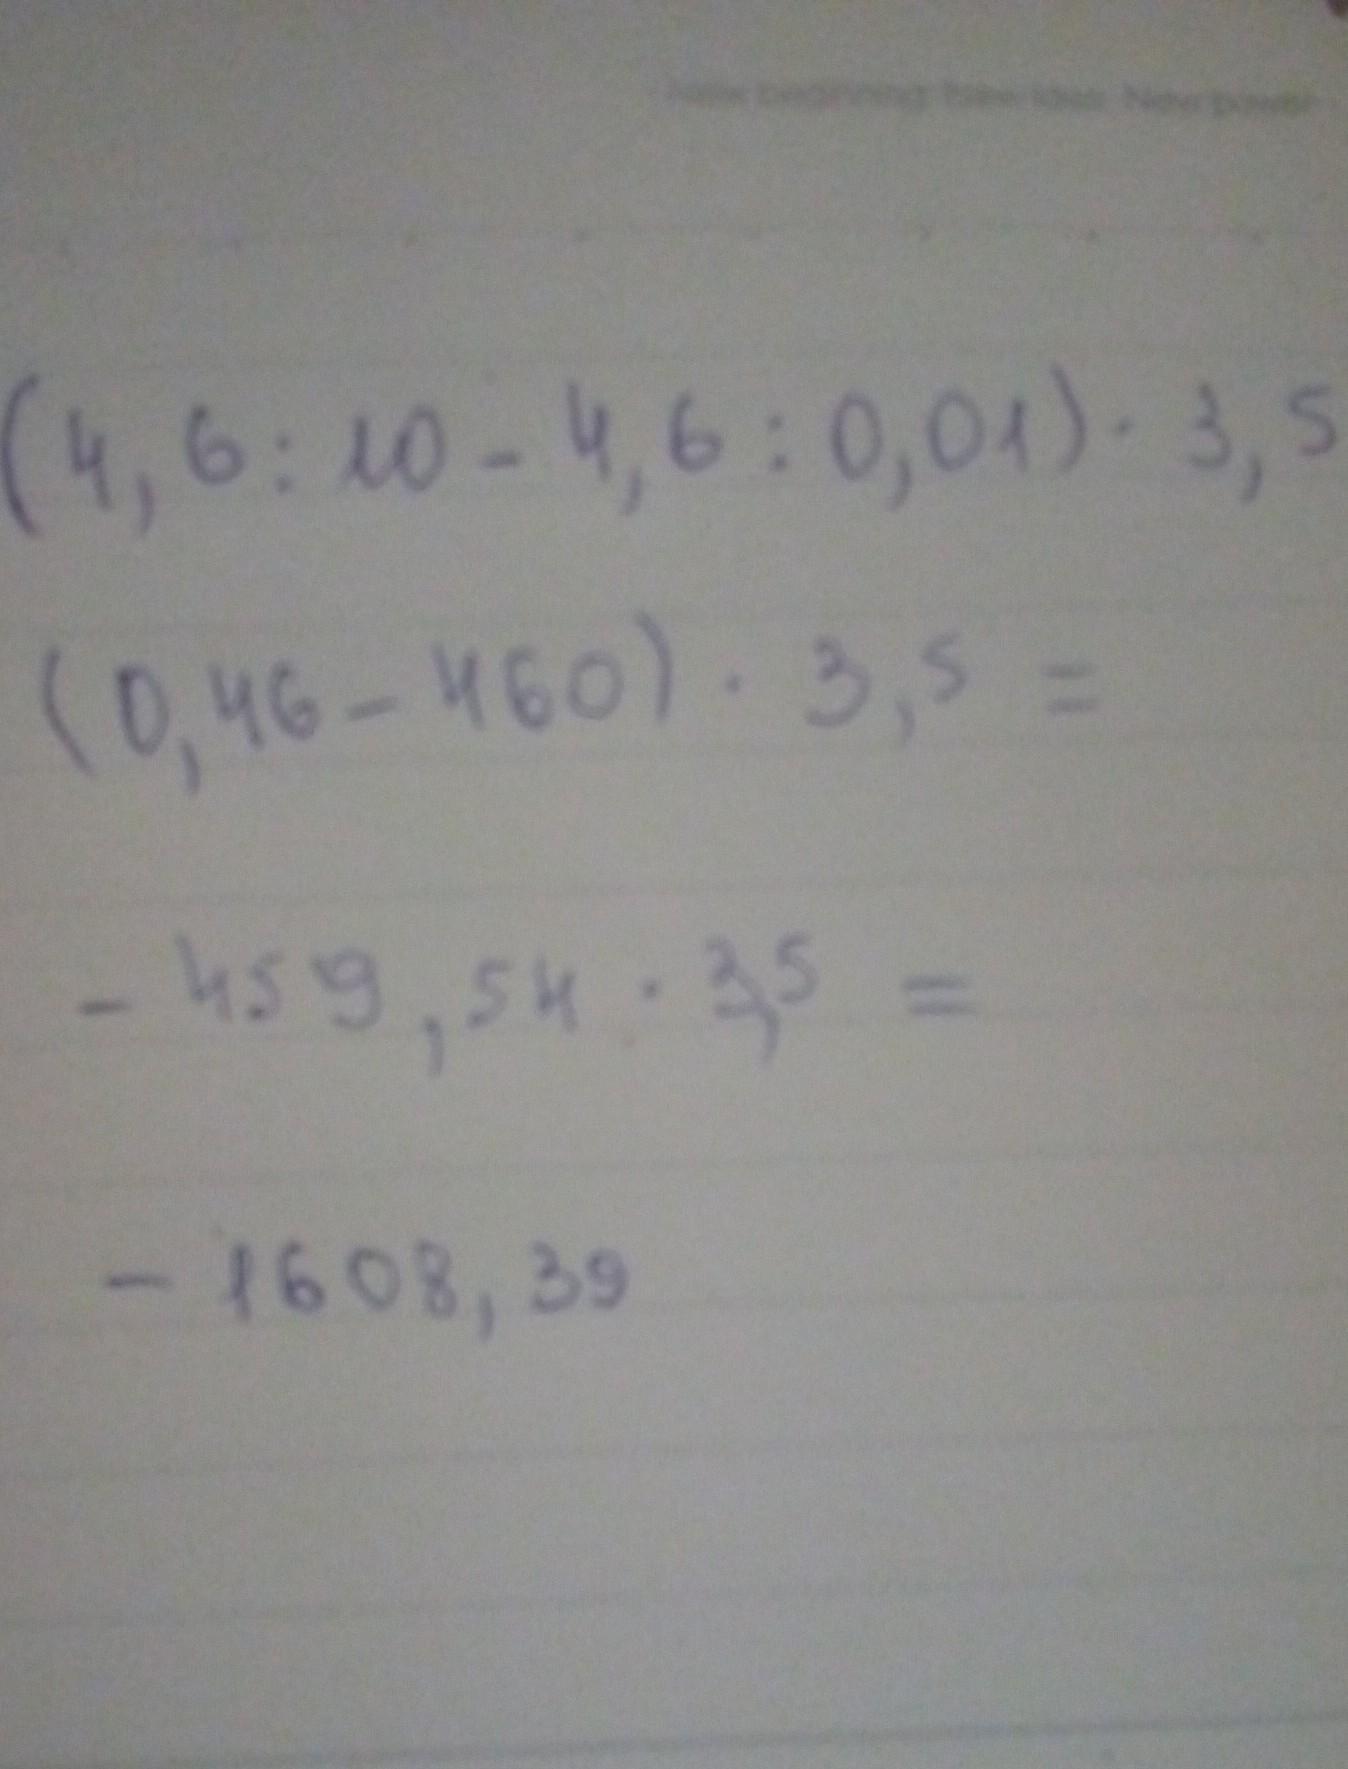 New beginning New idea New power
(4,6:10-4,6:0,01)·3,5
(0,46-460)·3,5=
-459,54·3,5=
-1608,39